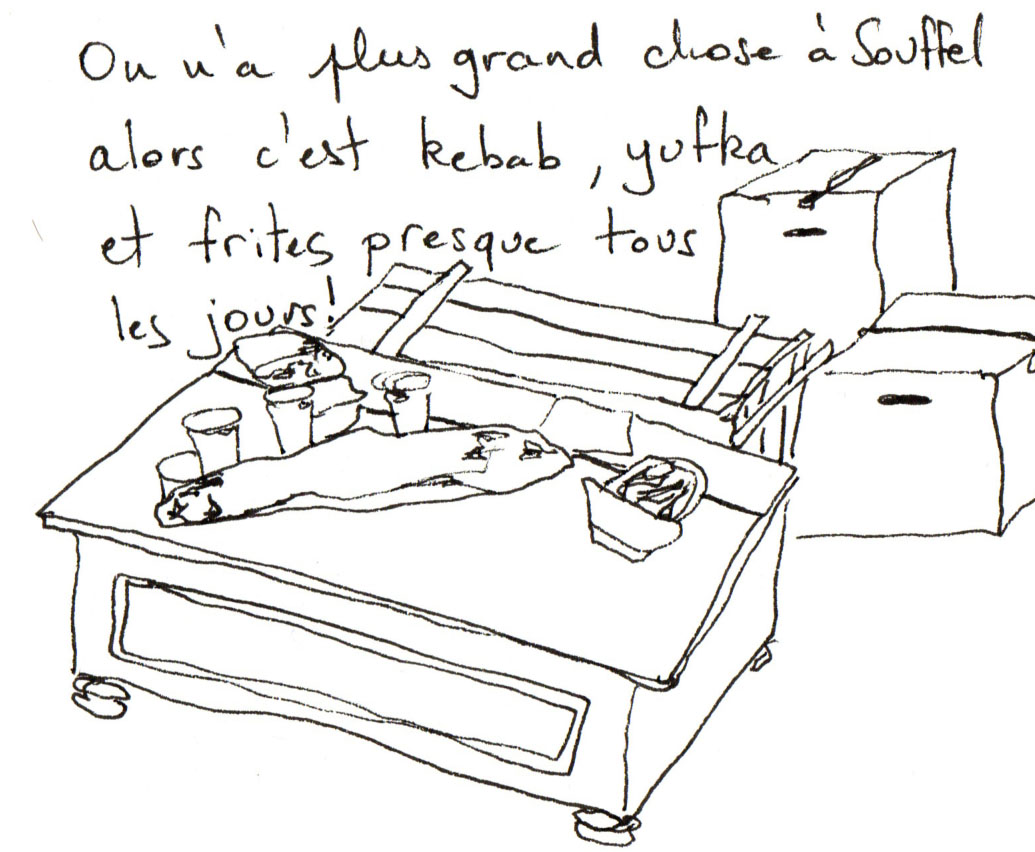 On n'a plus grand chose à Souffel
alors c'est kebab, yufka
et frites presque tous
les jours!